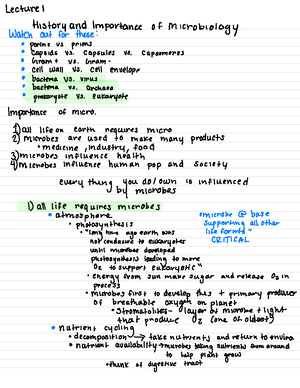 Lecture 1
History and Importance of Microbiology
Watch out for these:
• porins vs. prions
• capsids vs. capsules vs. capsomeres
• Gram + vs. Gram -
• cell wall vs. cell envelope
• bacteria vs. virus
• bacteria vs. archaea
• prokaryote vs. eukaryote
Importance of micro.
1) all life on earth requires micro
2) microbes are used to make many products
• medicine, industry, food
3) microbes influence health
4) microbes influence human pop and society
every thing you do/own is influenced
by microbes
1) all life requires microbes
• atmosphere
*microbe @ base
supporting all other
life forms*
CRITICAL
• photosynthesis
• "long time ago earth was
not conducive to eukaryotes
until microbes developed
photosynthesis leading to more
O₂ to support eukaryotic"
• energy from sun make sugar and release O₂ in
process
• microbes first to develop this + primary producer
of breathable oxygen on planet
• stromatolites - layer of microbe + light
that produce O₂ (one of oldest)
• nutrient cycling
• decomposition → take nutrients and return to enviro
• nutrient availability → microbes taking nutrients from around
to help plant grow
• think of digestive tract